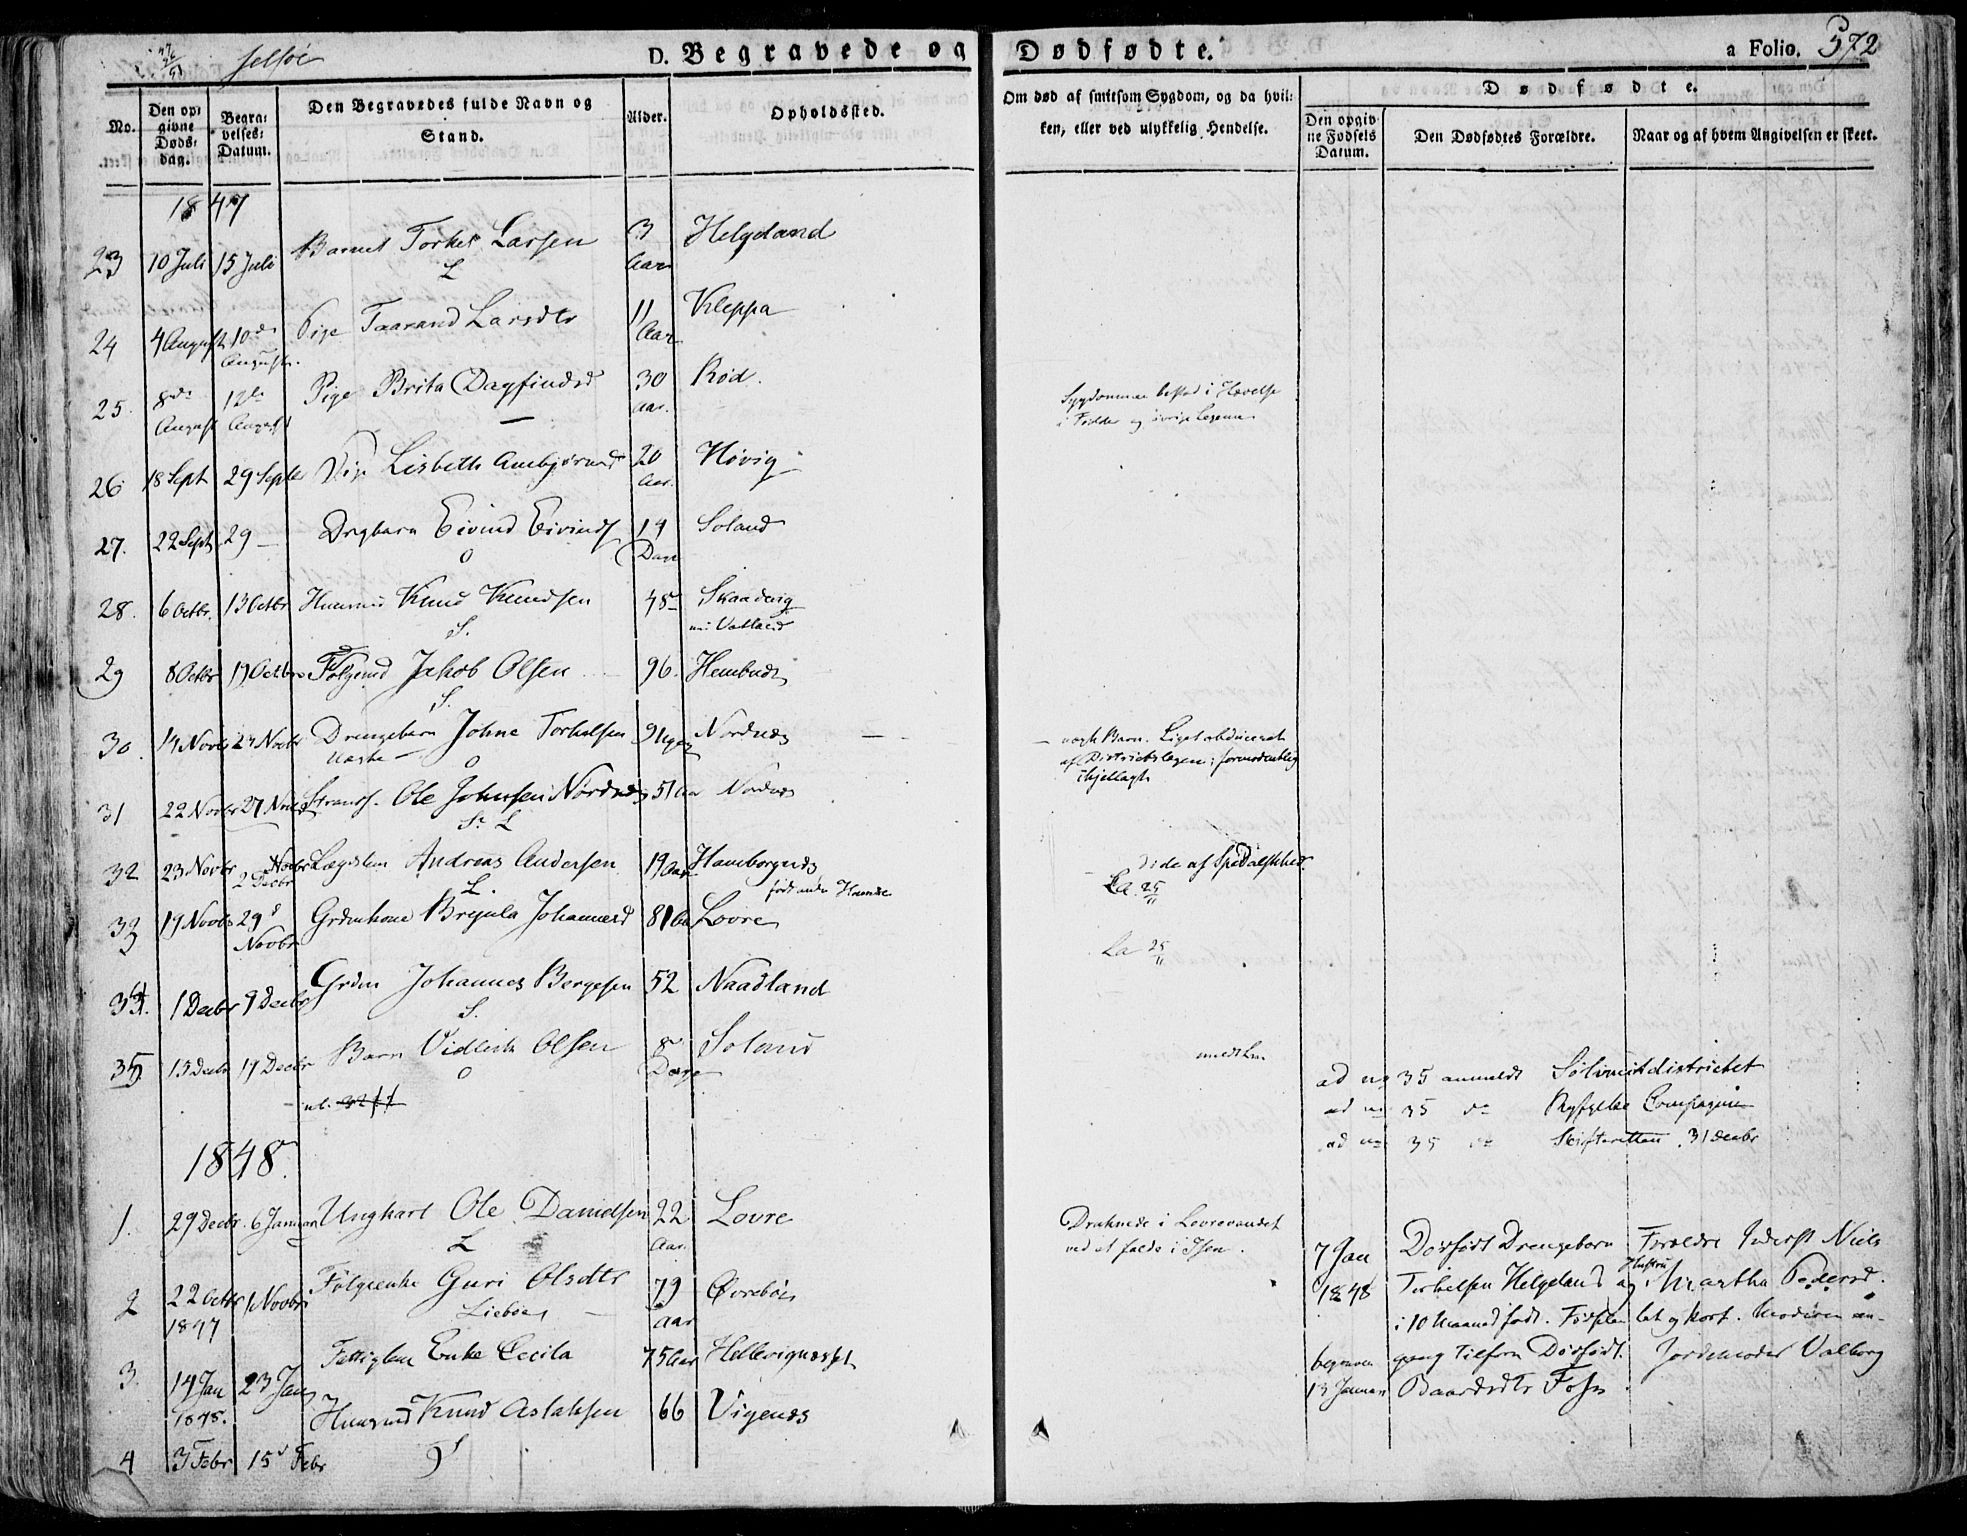 Jelsøe
D. Begravede og Dødfødte.
a Folio. 572
No.
Den opgivne Dødsdag.
Begravelses Datum.
Den Begravedes fulde Navn og Stand.
Alder.
Opholdssted.
Om død af smitsom Sygdom, og da hvilken, eller ved ulykkelig Hendelse.
Dødfødte.
Den opgivne Fødsels Datum.
Den Dødfødtes Forældre.
Naar og af hvem Angivelsen er skeet.
1847
23 10 Juli 15 Juli Barnet Torkel Larsen 3 Aar Helgeland
L
24 4 August 10de August Pige Taarand Larsdtr 11 Aar Kleppa
25. 8de August 12te August Pige Brita Dagfindsd 30 Aar. Rød.
Sygdommen bestod i Hævelse
i Fødder og øvrige Legeme
26 18 Sept 29 Septbr Pige Lisbeth 20 Aar. Høvig
27. 22 Sept 29 — Drgbarn Eivind Eivinds 14 Dage Soland
O
28. 6 Octbr. 13 Octbr Huusmd Knud Knudsen 48 Skaadevig
S. Vatland
29 8 Octbr 17 Octbr Følgemd Jakob Olsen 96. Hembude
S.
30. 14 Novbr 23 Novbr Drengebarn Johne Torkelsen 9 Uger Nordnæs
O
— Barn. Liget obduceret
af Districtslægen: formodentlig
ihjellagt
31 22 Novbr 27 Novbr Ole Johnsen Nordnæs 51 Aar Nordnæs
Sr L
32 23 Novbr 2 Decbr Lægdslem Andreas Andersen 19 Aar Hamborgnæs
L.
døde af Spedalskhed
La 25/11
33 19 Novbr 29d Novbr Grdmkone Brynla Johannesd 81 Aar Lovre
La 25/11
34. 1 Decbr 9 Decbr Grdm Johannes Bergesen 52 Naadland
S.
35 13 Decbr 19 Decbr Barn Vidlich Olsen 8 Dage Soland
O
ad no 35 anmeldt Søinnrulldistrictet
ad no 35 do Ryfylke Compagnie
ad no 35 do Skifteretten. 31 Decbr
1848.
1. 29 Decbr. 6 Januar Ungkarl Ole Danielsen 22 Aar Lovre
L
Druknede i Lovrevandet
ved at falde i Isen.
2 22 Octbr 1847 1 Novbr Følgeenke Guri Olsdtr 79 Aar Øvrebøe
Liebøe
3. 14 Jan 1848. 23 Jan Fattiglem Enke Cecila 75 Aar Hellevignæsset
4 3 Febr 15d Febr Huusmd Knud Aslaksen 66 Vigenæs
7 Jan 1848 Dødfødt Drengebarn Forældre Inderst Niels
Torkelsen Helgeland og Hustru Martha Pedersd.
i 10 Maaned født. Fødselen let og kort. Moderen en-
begraven gang tilforn Dødfødt. Jordemoder Valborg
13 Januar Baardsdtr Foss.